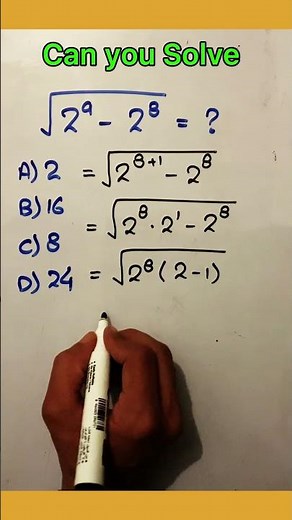 Can you Solve
√2⁹ - 2⁸ = ?
A) 2 = √2⁸⁺¹ - 2⁸
B) 16 = √2⁸ · 2¹ - 2⁸
C) 8
D) 24 = √2⁸ ( 2 - 1 )